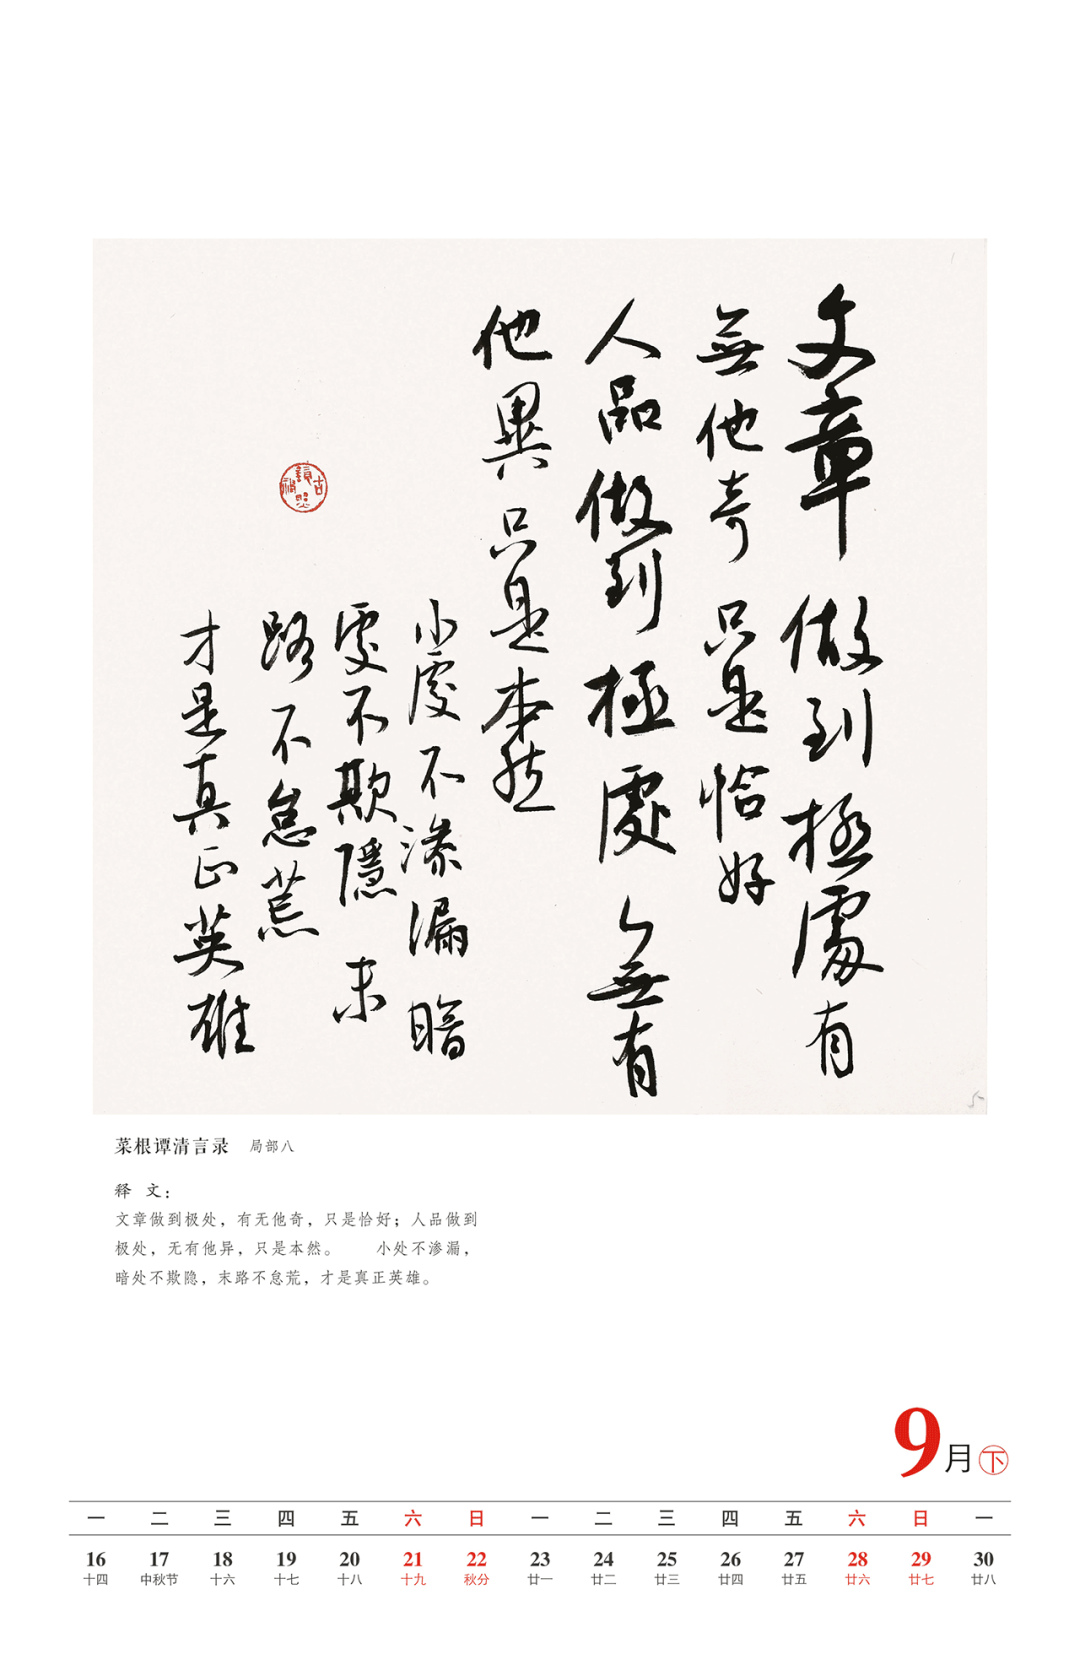 文章做到極處有
無他奇只是恰好
人品做到極處無有
他異只是本然
小處不滲漏暗
處不欺隱末
路不怠荒
才是真正英雄
菜根谭清言录 局部八
释 文：
文章做到极处，有无他奇，只是恰好；人品做到
极处，无有他异，只是本然。 小处不渗漏，
暗处不欺隐，末路不怠荒，才是真正英雄。
9月下
一 二 三 四 五 六 日 一 二 三 四 五 六 日 一
16 17 18 19 20 21 22 23 24 25 26 27 28 29 30
十四 中秋节 十六 十七 十八 十九 秋分 廿一 廿二 廿三 廿四 廿五 廿六 廿七 廿八